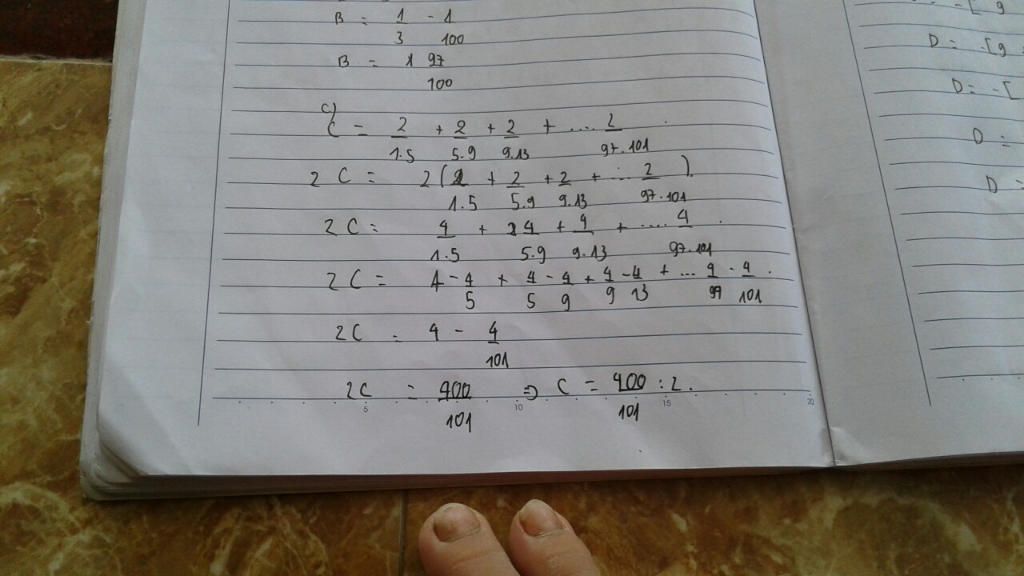 B = 1/3 - 1/100
B = 1 97/100
c)
C = 2/1.5 + 2/5.9 + 2/9.13 + .... 2/97.101 .
2 C = 2 ( 2/1.5 + 2/5.9 + 2/9.13 + ... 2/97.101 ).
2 C = 4/1.5 + 4/5.9 + 4/9.13 + .... 4/97.101 .
2 C = 4 - 4/5 + 4/5 - 4/9 + 4/9 - 4/13 + ... 4/97 - 4/101 .
2C = 4 - 4/101
2C = 400/101 => C = 400/101 : 2 .
5 10 15 20
D = -[9
D = -[
D =
D =